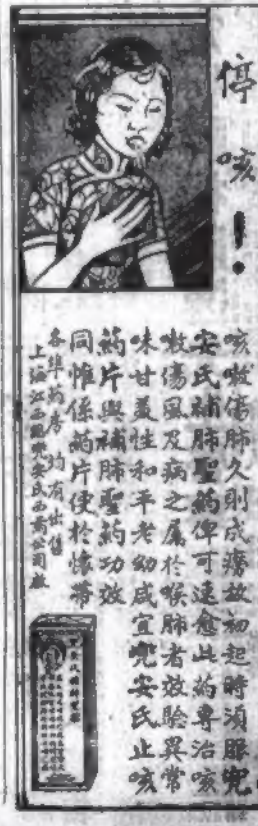 停咳！
咳嗽傷肺久則成癆故初起時須服兜
安氏補肺聖葯俾可速愈此葯專治咳
嗽傷風及病之屬於喉肺者效騐異常
味甘美性和平老幼咸宜兜安氏止咳
葯片與補肺聖葯功效
同惟係葯片便於懷帶
各埠葯房均有出售
上海江西路兜安氏西葯公司啟